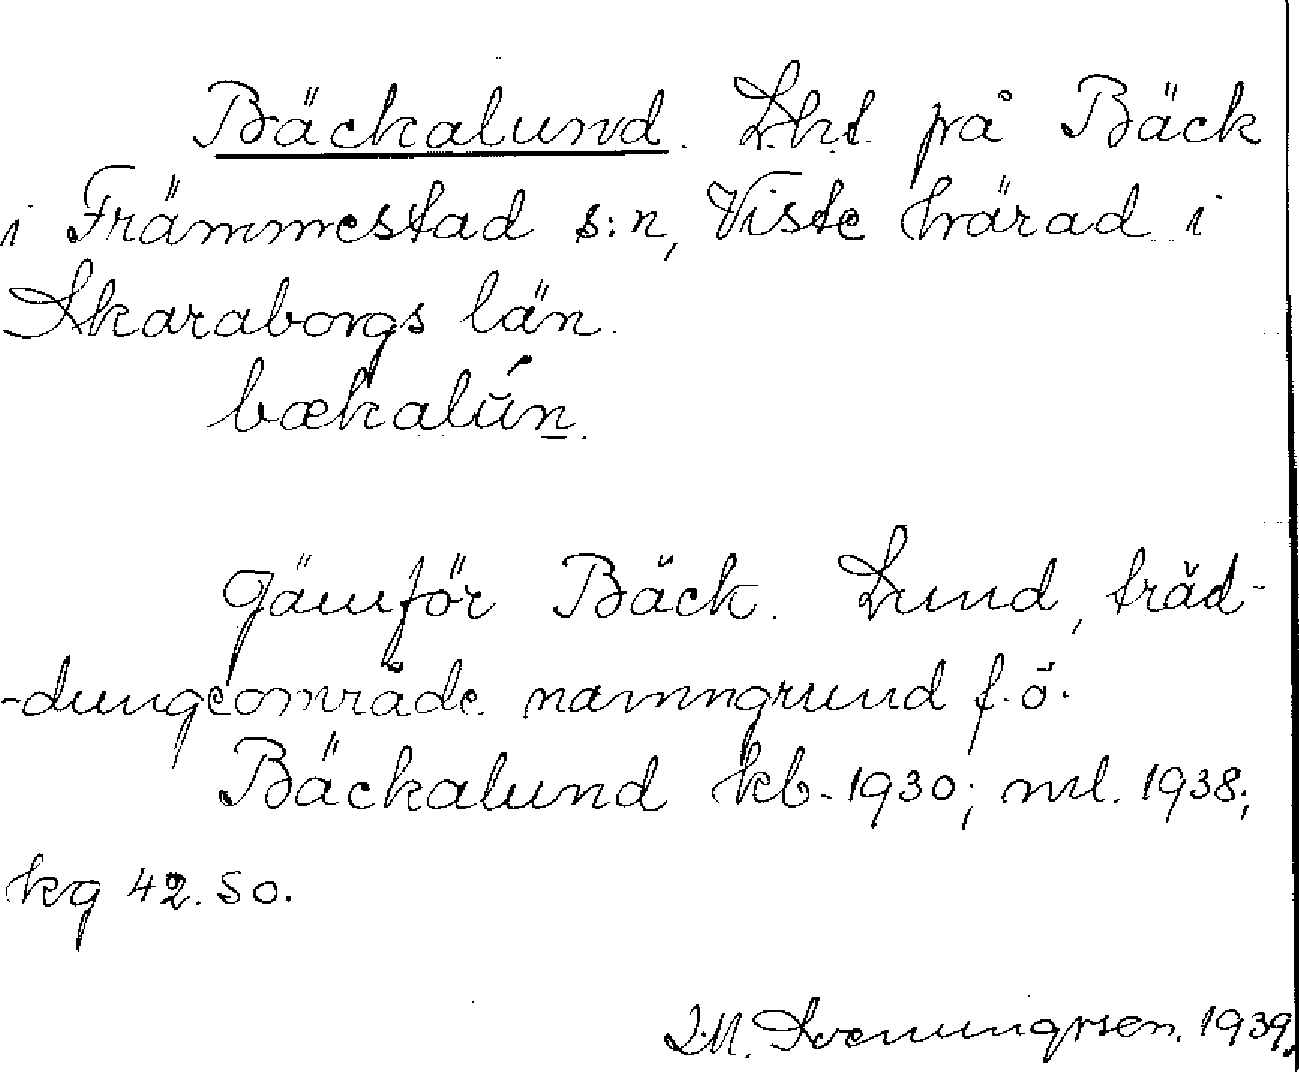 Bäckalund. Lht. på Bäck
i Främmestad s:n, Viste härad i
Skaraborgs län.
bækalún.
Jämför Bäck. Lund, träd-
-dungeområde. namngrund f.ö.
Bäckalund kb. 1930; ml. 1938;
kg 42. SO.
Svenungsson. 1939.